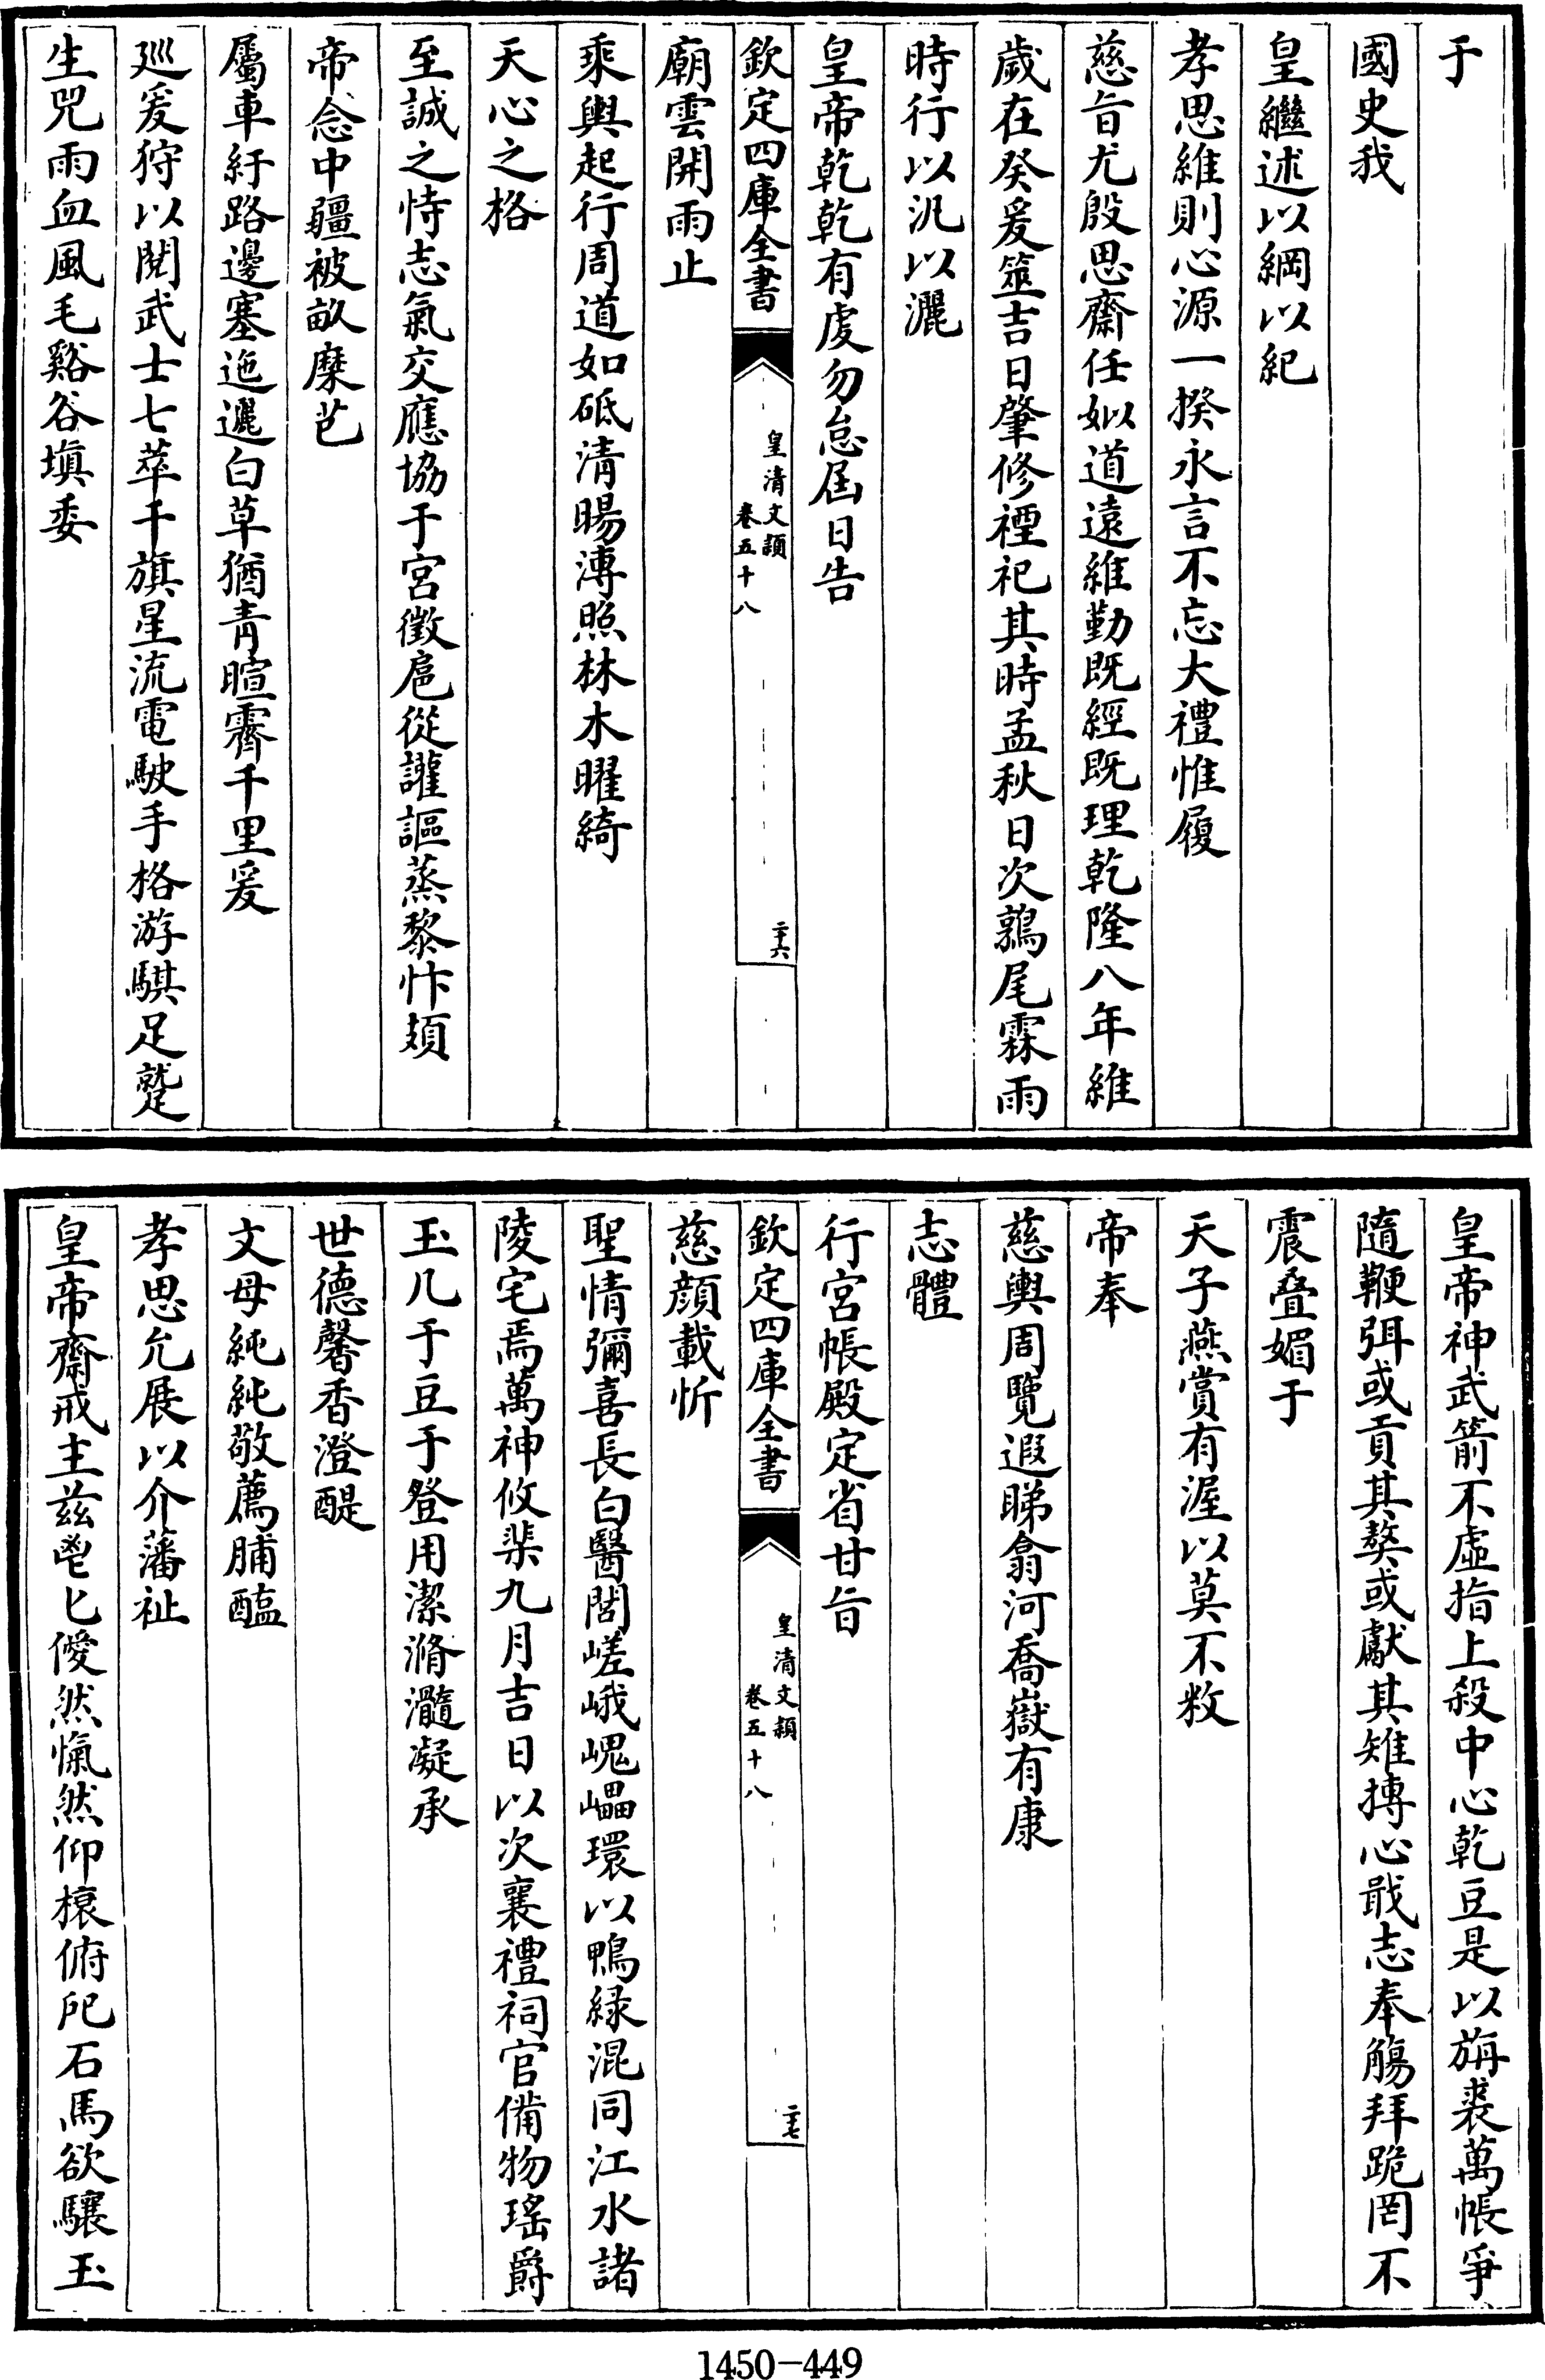 于
國史我
皇繼述以綱以紀
孝思維則心源一揆永言不忘大禮惟履
慈㫖尤殷思齋任姒道遠維勤既經既理乾隆八年維
歲在癸爰筮吉日肇修禋祀其時孟秋日次鶉尾霖雨
時行以汎以灑
皇帝乾乾有䖍勿怠屆日告
欽定四庫全書
皇清文頴
卷五十八
二十六
廟雲開雨止
乘輿起行周道如砥清暘溥照林木曜綺
天心之格
至誠之恃志氣交應協于宮徵扈從讙謳蒸黎忭頍
帝念中疆被畝糜芑
屬車紆路邊塞迤邐白草猶青暄霽千里爰
廵爰狩以閱武士七萃千旗星流電駛手格游騏足蹵
生兕雨血風毛谿谷塡委
皇帝神武箭不虛指上殺中心乾豆是以旃裘萬帳爭
隨鞭弭或貢其獒或獻其雉摶心戢志奉觴拜跪罔不
震疊媚于
天子燕賞有渥以莫不敉
帝奉
慈輿周覽遐睇翕河喬嶽有康
志體
行宮帳殿定省甘㫖
欽定四庫全書
皇清文頴
卷五十八
二十七
慈顔載忻
聖情彌喜長白醫閭嵯峨嵬㠥環以鴨緑混同江水諸
陵宅焉萬神攸棐九月吉日以次襄禮祠官備物瑤爵
玉几于豆于登用潔滫瀡凝承
世德馨香澄醍
文母純純敬薦脯醢
孝思允展以介蕃祉
皇帝齋戒主兹鬯匕僾然愾然仰榱俯戺石馬欲驤玉
1450-449